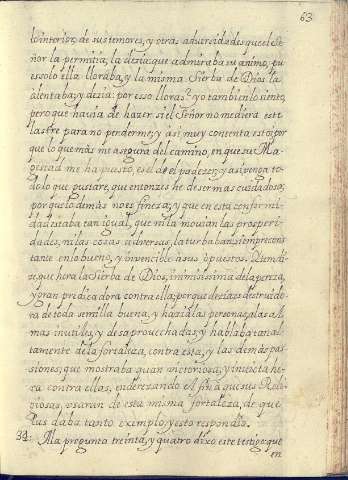 63
lo interior, de sus temores, y otras adversidades que el Se-
ñor la permitia, la dixe que admiraba su animo, pu
es solo ella lloraba, y la misma Sierba de Dios la
alentaba, y dezia: por eso lloras? yo tambien lo siento,
pero que havia de hazer si el Señor no me diera este
lastre para no perderme; y asi muy contenta estoi por
que lo que más me asegura del camino, en que su Ma
gestad me ha puesto, es el de el padezer; y asi venga to-
do lo que gustare, que entonzes he de ser mas cuidadosa;
porque lo demàs no es fineza; y que en esta conformi-
dad estaba tan igual, que ni la movian las prosperi-
dades, ni las cosas adversas, la turbaban, siempre cons
tante en lo bueno, y invencible à sus opuestos. Iten di-
ze que hera la Sierba de Dios, inimisissima de la pereza,
y gran predicadora contra ella; porque dezia es destruido-
ra de toda semilla buena, y hazia las personas, y las Al
mas inutiles, y desaprovechadas; y hablaba tan al-
tamente de la fortaleza, contra esta, y las demàs pa-
siones, que mostraba quan victoriosa, y invicta he-
ra contra ellas, enderezando el fin à que sus Reli-
giosas, usaran de esta misma fortaleza, de que
las daba tanto exemplo; y esto respondio.
34. A la pregunta treinta, y quatro dixo este testigo: que
en